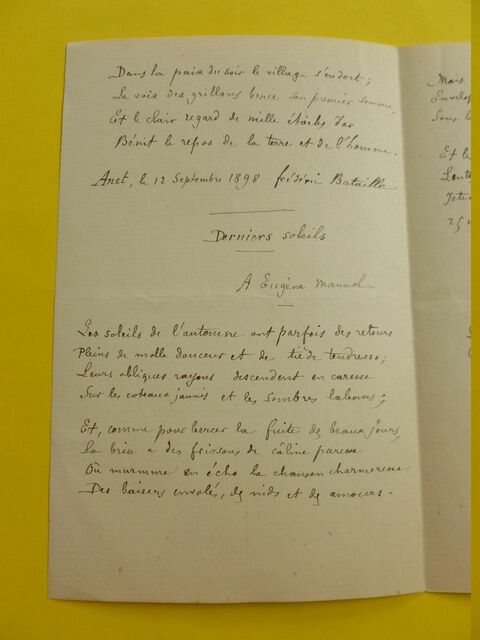 Dans la paix du soir le village s'endort ;
La voix des grillons berce son premier somme,
Et le clair regard de mille étoiles d'or
Bénit le repos de la terre et de l'homme.
Anet, le 12 Septembre 1898 frédéric Bataille
Derniers soleils
A Eugène Manuel
Les soleils de l'automne ont parfois des retours
Pleins de molle douceur et de tiède tendresse ;
Leurs obliques rayons descendent en caresse
Sur les coteaux jaunis et les sombres labours ;
Et, comme pour bercer la fuite des beaux jours,
La brise a des frissons de câline paresse
Où murmure en écho la chanson charmeresse
Des baisers envolés, des nids et des amours.
Mais
Envelop
Sous l
Et le
Jeter
25